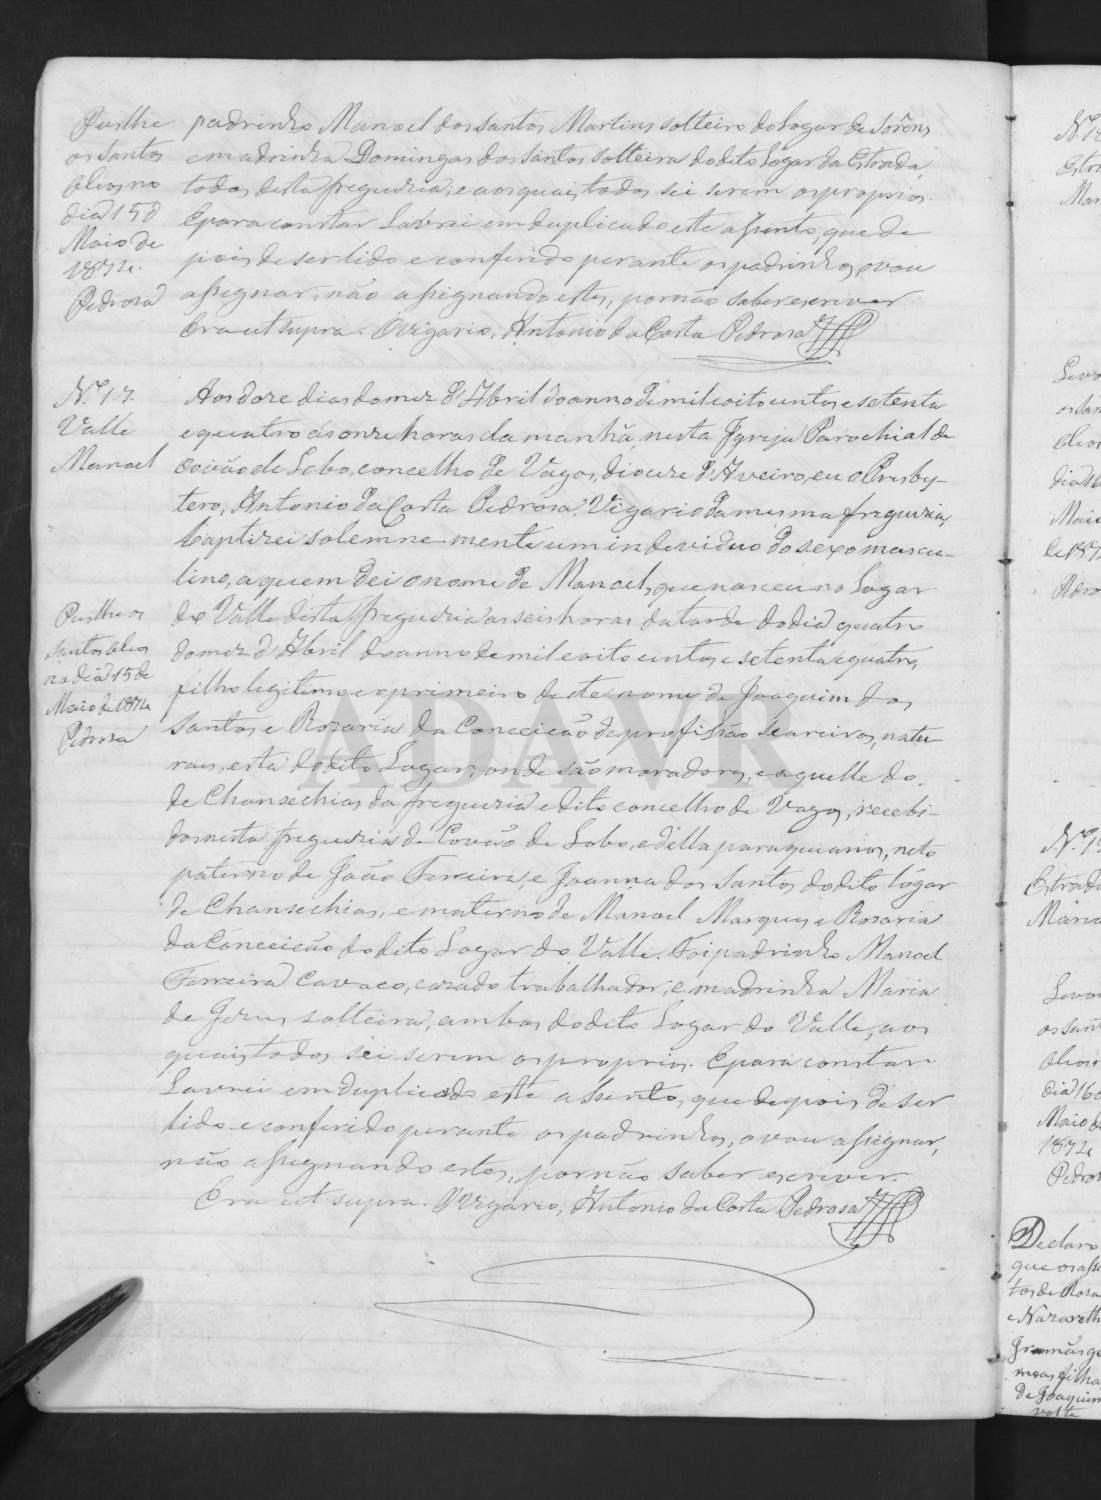 Puslhe
os Santos
Oleos no
dia 15 d
Maio de
1874.
Pedrosa
padrinho Manoel dos Santos Martins solteiro do Logar de
e madrinha Domingas dos Santos solteira do dito Logar da Estrada,
todos desta freguezia, e aos quais todos sei serem os proprios.
E para constar Lavrei em duplicado este assento, que de
pois de ser lido e conferido perante os padrinhos, o vou
assignar, não assignando estes, por não saber escrever
Era ut supra. O Vigario, Antonio da Costa Pedrosa
N.º 17.
Valle
Manoel
Aos doze dias do mez d'Abril do anno de mil e oito centos e setenta
e quatro ás onze horas da manhã, nesta Igreja Parochial de
Covão do Lobo, concelho de Vagos, dioceze d'Aveiro, eu o Presby-
tero, Antonio da Costa Pedrosa, Vigario da mesma freguezia,
baptizei solemne mente um individuo do sexo mascu-
lino, a quem dei o nome de Manoel, que nasceu no Logar
do Valle desta freguezia as seis horas da tarde do dia quatro
do mez d'Abril do anno de mil e oito centos e setenta e quatro,
filho legitimo e o primeiro deste nome de Joaquim dos
Santos e Rozaria da Conceição de profissão Seareiros, natu
raes, esta do dito Logar, onde são moradores, e aquelle do
de Chansechias da freguezia e dito concelho de Vagos, recebi-
dos nesta freguezia de Covão do Lobo, e della paraquianos, neto
paterno de João Ferreira, e Joanna dos Santos do dito lógar
de Chansechias, e materno de Manoel Marques e Rosaria
da Conceição do dito Logar do Valle. Foi padrinho Manoel
Ferreira Cavaco, cazado trabalhador, e madrinha Maria
de Jezus solteira, ambos do dito Logar do Valle, aos
quais todos sei serem os proprios. E para constar
Lavrei em duplicado este assento, que depois de ser
lido e conferido perante os padrinhos, o vou assignar,
não assignando estes, por não saber escrever.
Era ut supra. O Vigario, Antonio da Costa Pedrosa
Puslhe os
Santos Oleos
no dia 15 de
Maio de 1874
Pedrosa
ADAVR
Declaro
que os asse
tos de Rosa
e Nazareth
Irmãs ge
meas filhas
de Joaquim
volte